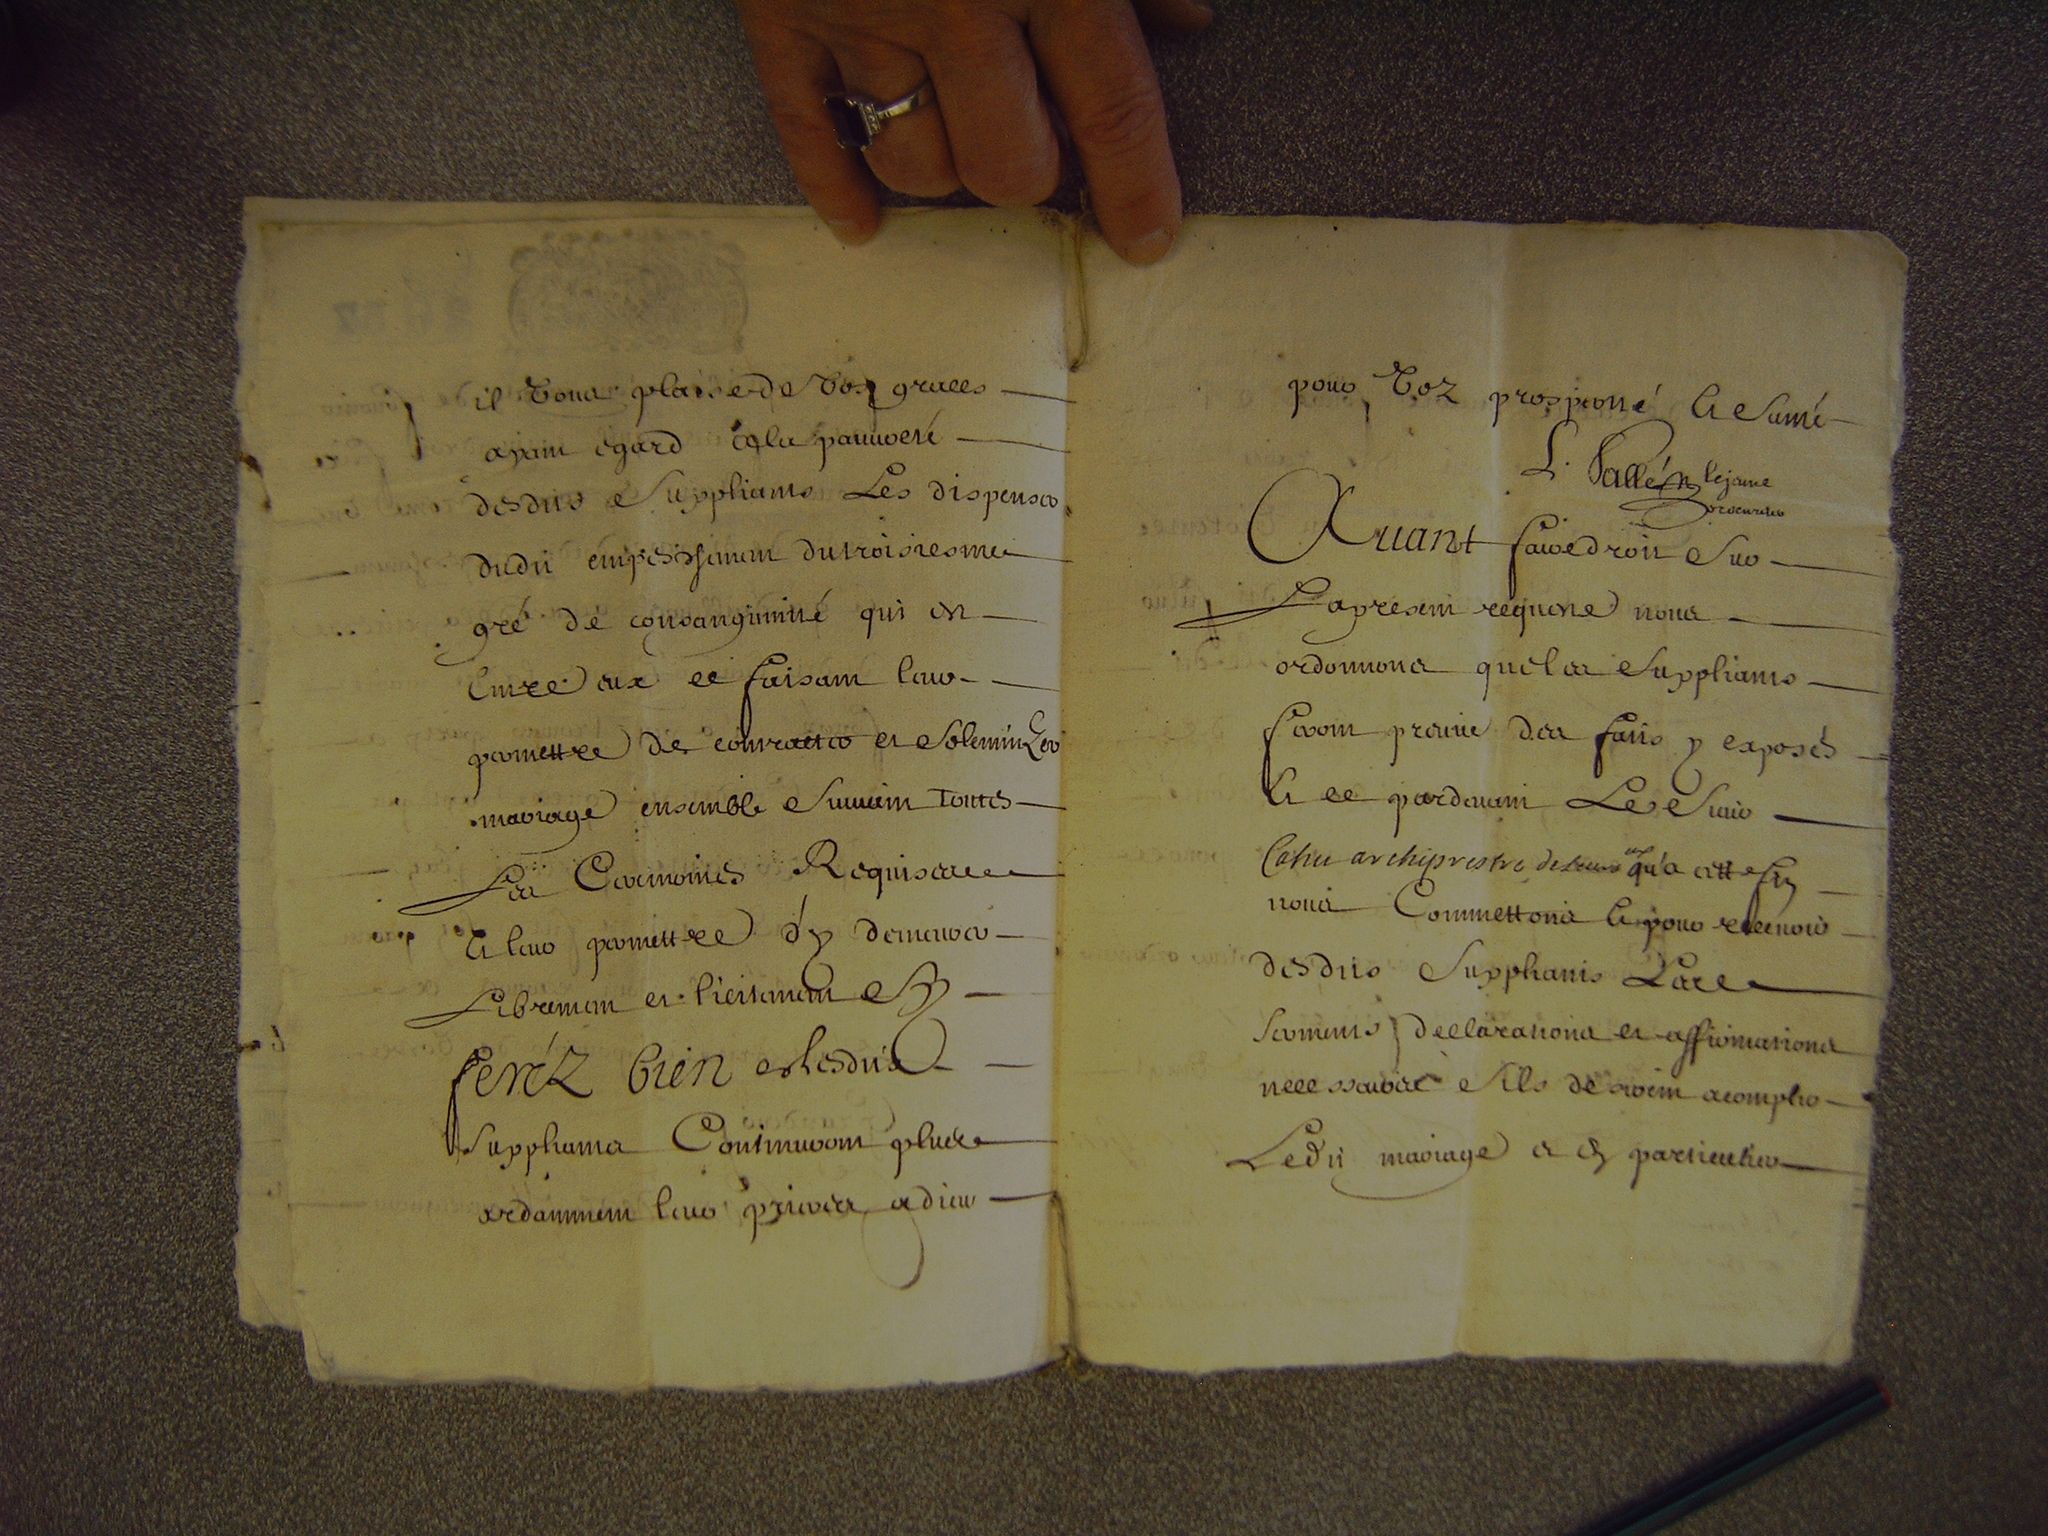 il vous plaise de vos graces
ayant egard a la pauvreté
desdits Suppliants Les dispenser
dudit empeschement du troisiesme
gré de consanguinité qui est
Entre eux ce faisant leur
permettre de contracter et solemnizer
mariage ensemble Suivant toutes
Les Ceremonies Requises
Et leur permettre d'y demeurer
Librement et licitement Sy
ferez bien et lesdits
Suppliants Continueront plus
ardamment leurs prieres a dieu
pour voz prosperité et Santé
L. Vallée lejeune
procureur
Avant faire droit Sur
La present requeste nous
ordonnons que les Suppliants
feront preuve des faits y exposés
Et ce pardevant Le Sieur
archiprestre de qu'a cette fin
nous Commettons Et pour recevoir
desdits Suppliants Les
Serments declarations et affirmations
necessaires S'ils desirent acomplir
Ledit mariage et en particulier